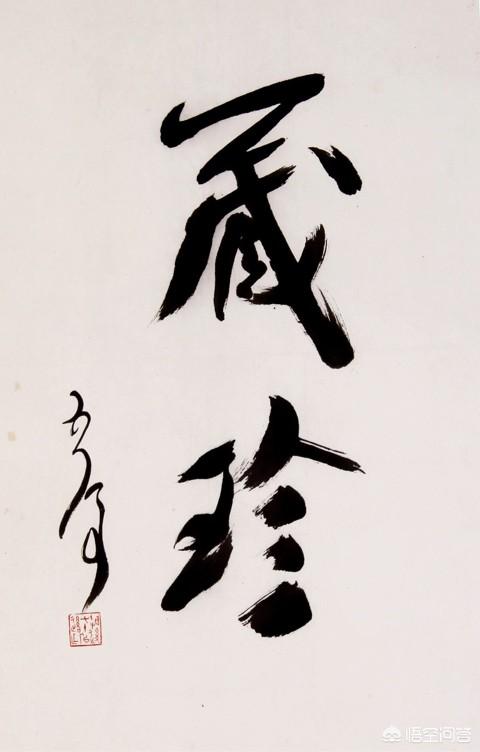 藏珍
悟空问答